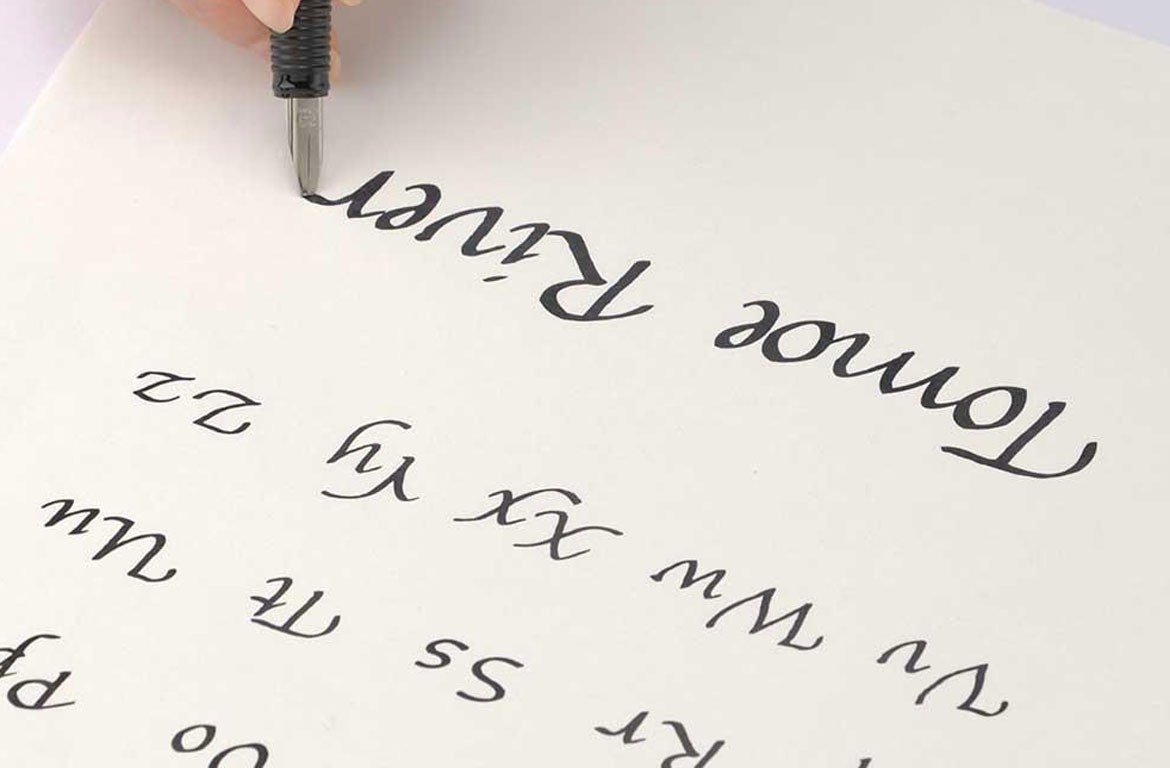 Oo Pp
Rr Ss Tt Uu
Vv Ww Xx Yy Zz
Tomoe River